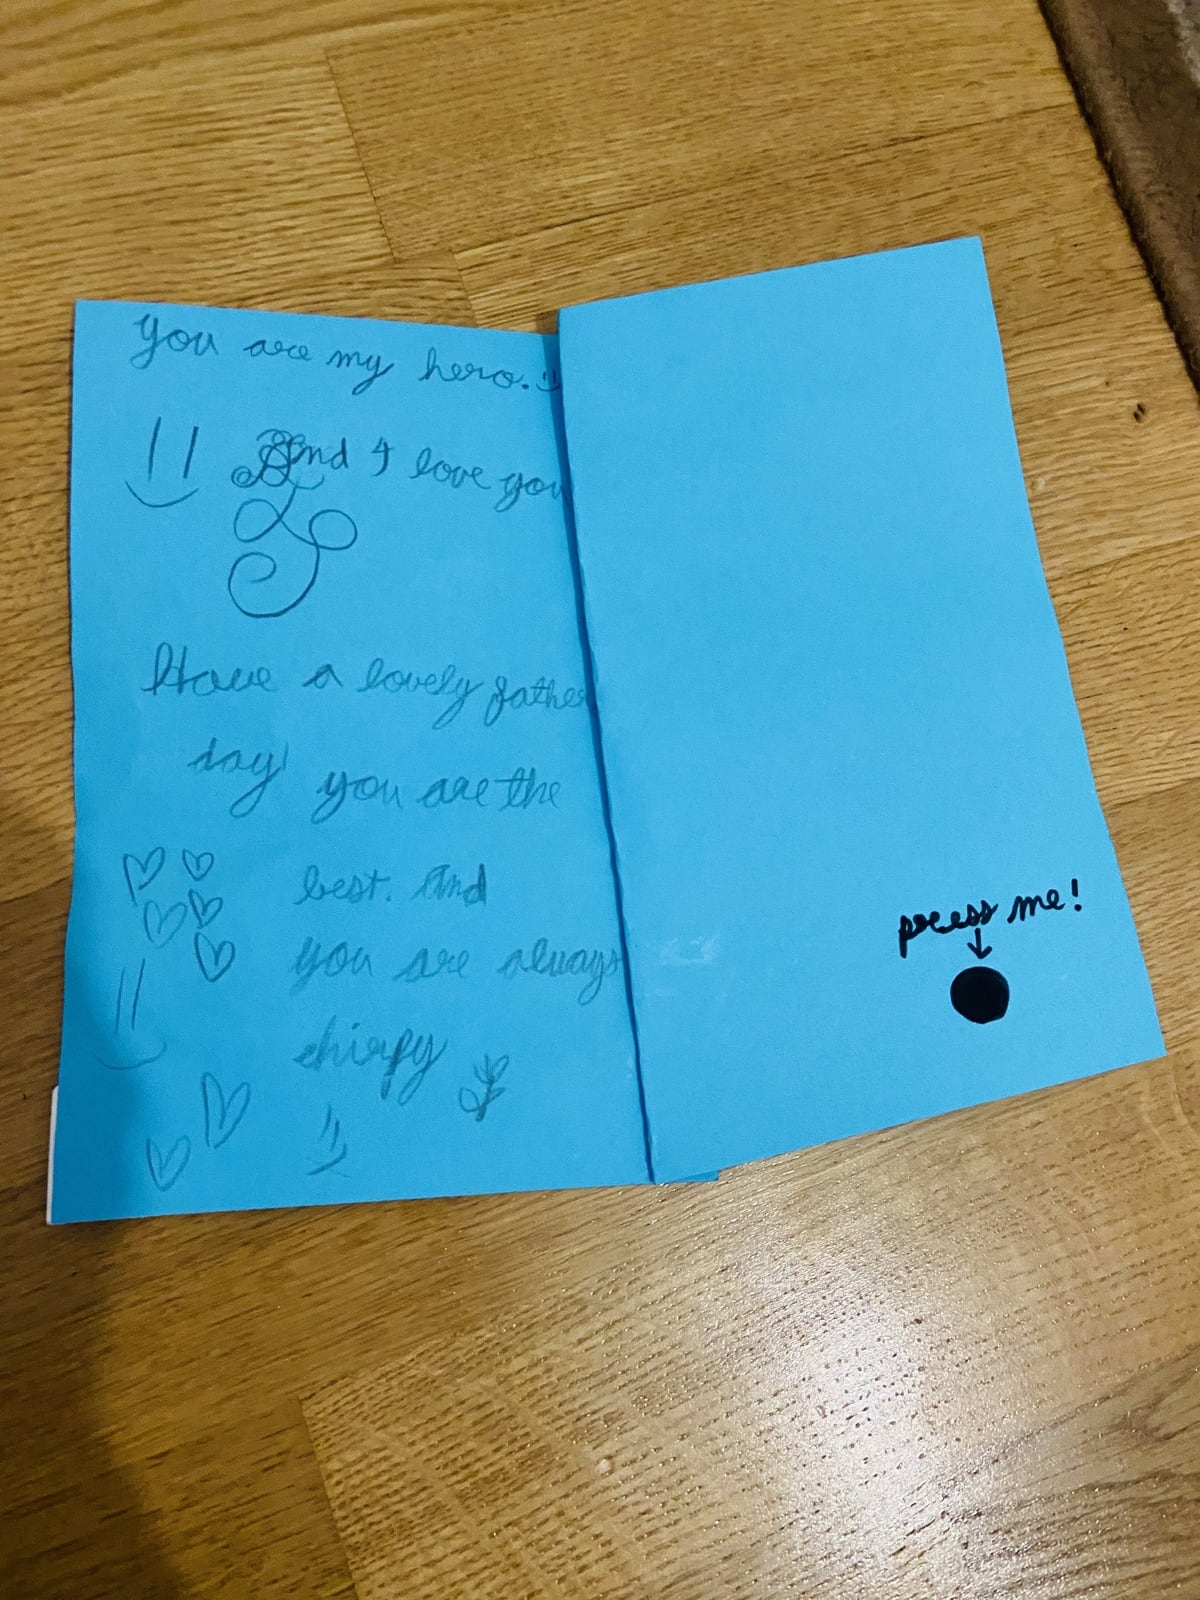 you are my hero.
And I love you
Have a lovely father
day you are the
best. And
you are always
chirpy
press me!